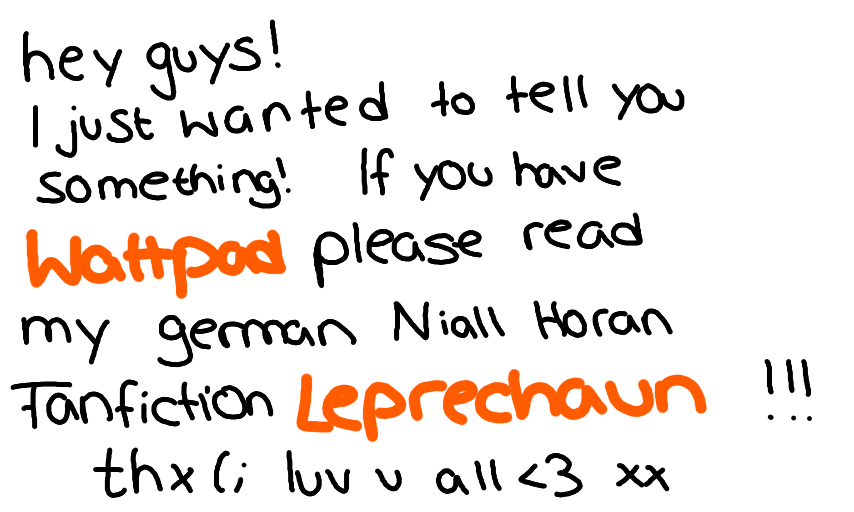 hey guys!
I just wanted to tell you
something! If you have
Wattpad please read
my german Niall Horan
Fanfiction Leprechaun !!!
thx (; luv u all <3 xx